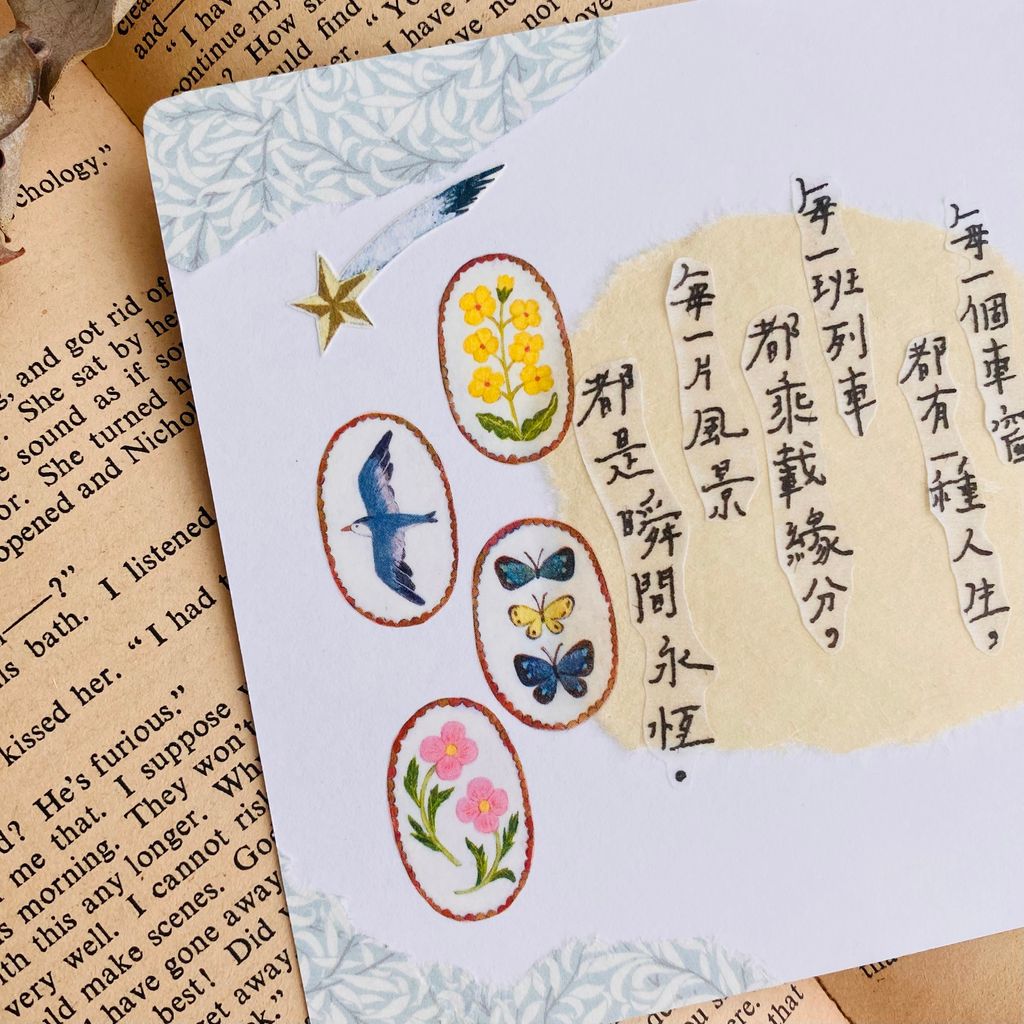 每一個車窗
都有一種人生，
每一班列車
都乘載緣分，
每一片風景
都是瞬間永恆．
and—
"I have
continue my
? How
find
"You
I have
not
love
chology."
and got rid of
She sat by
sound as if
She turned
opened and
——?"
bath. I listened
kissed her. "I had
He's furious."
me that. I suppose
morning. They won't
this any longer.
very well. I cannot risk
make scenes.
have gone away
best! Did
get away
you
that